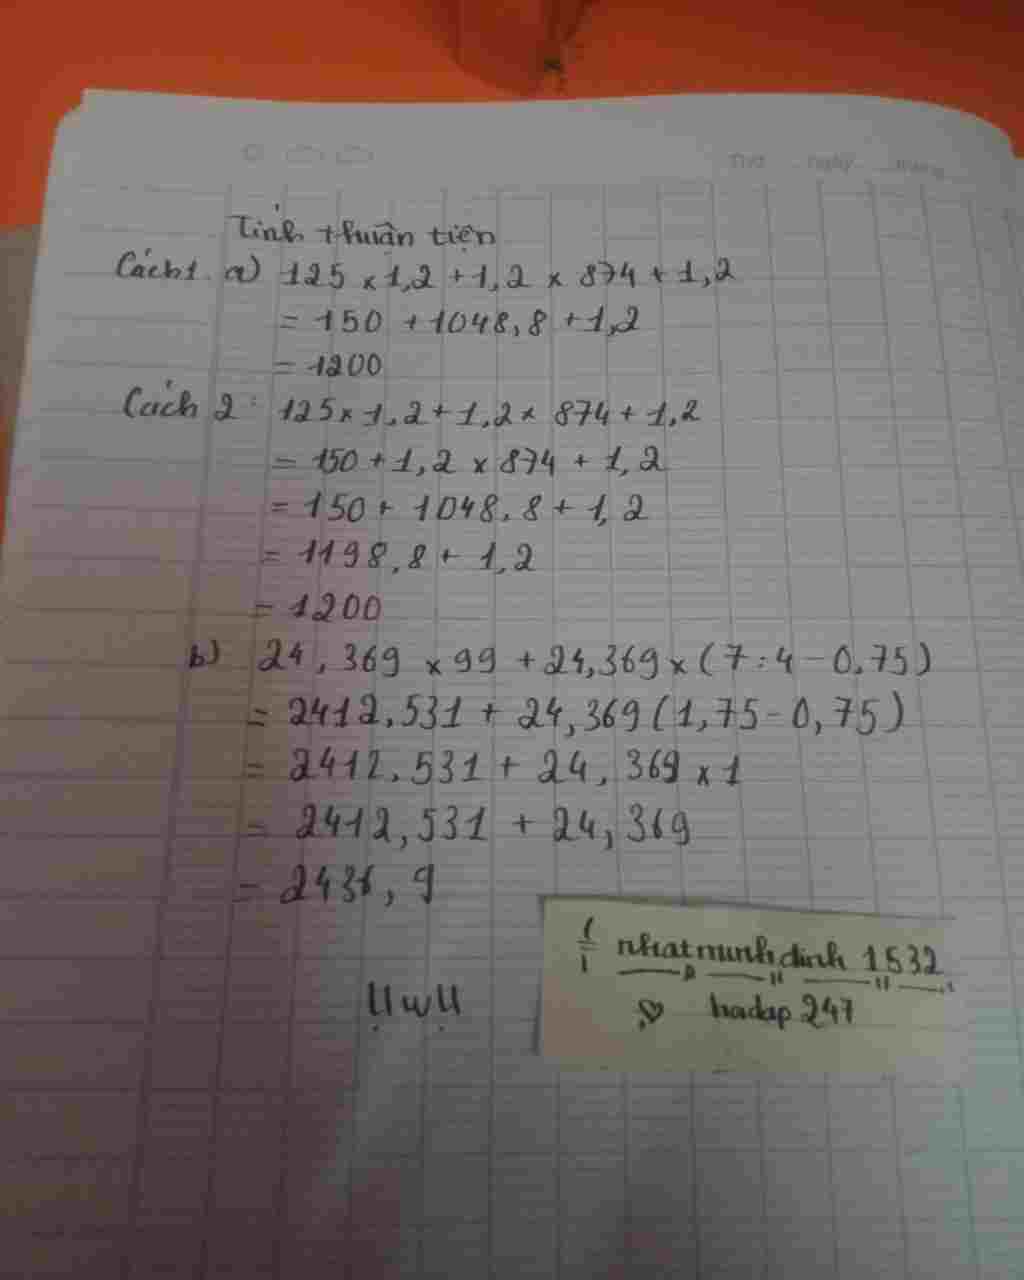 Thứ ngày tháng
Tính thuận tiện
Cách 1. a) 125 x 1,2 + 1,2 x 874 + 1,2
= 150 + 1048,8 + 1,2
= 1200
Cách 2: 125 x 1,2 + 1,2 x 874 + 1,2
= 150 + 1,2 x 874 + 1,2
= 150 + 1048,8 + 1,2
= 1198,8 + 1,2
= 1200
b) 24,369 x 99 + 24,369 x (7 : 4 - 0,75)
= 2412,531 + 24,369 (1,75 - 0,75)
= 2412,531 + 24,369 x 1
= 2412,531 + 24,369
= 2436,9
ỤwỤ
nhatminhdinh 1532
hoidap247